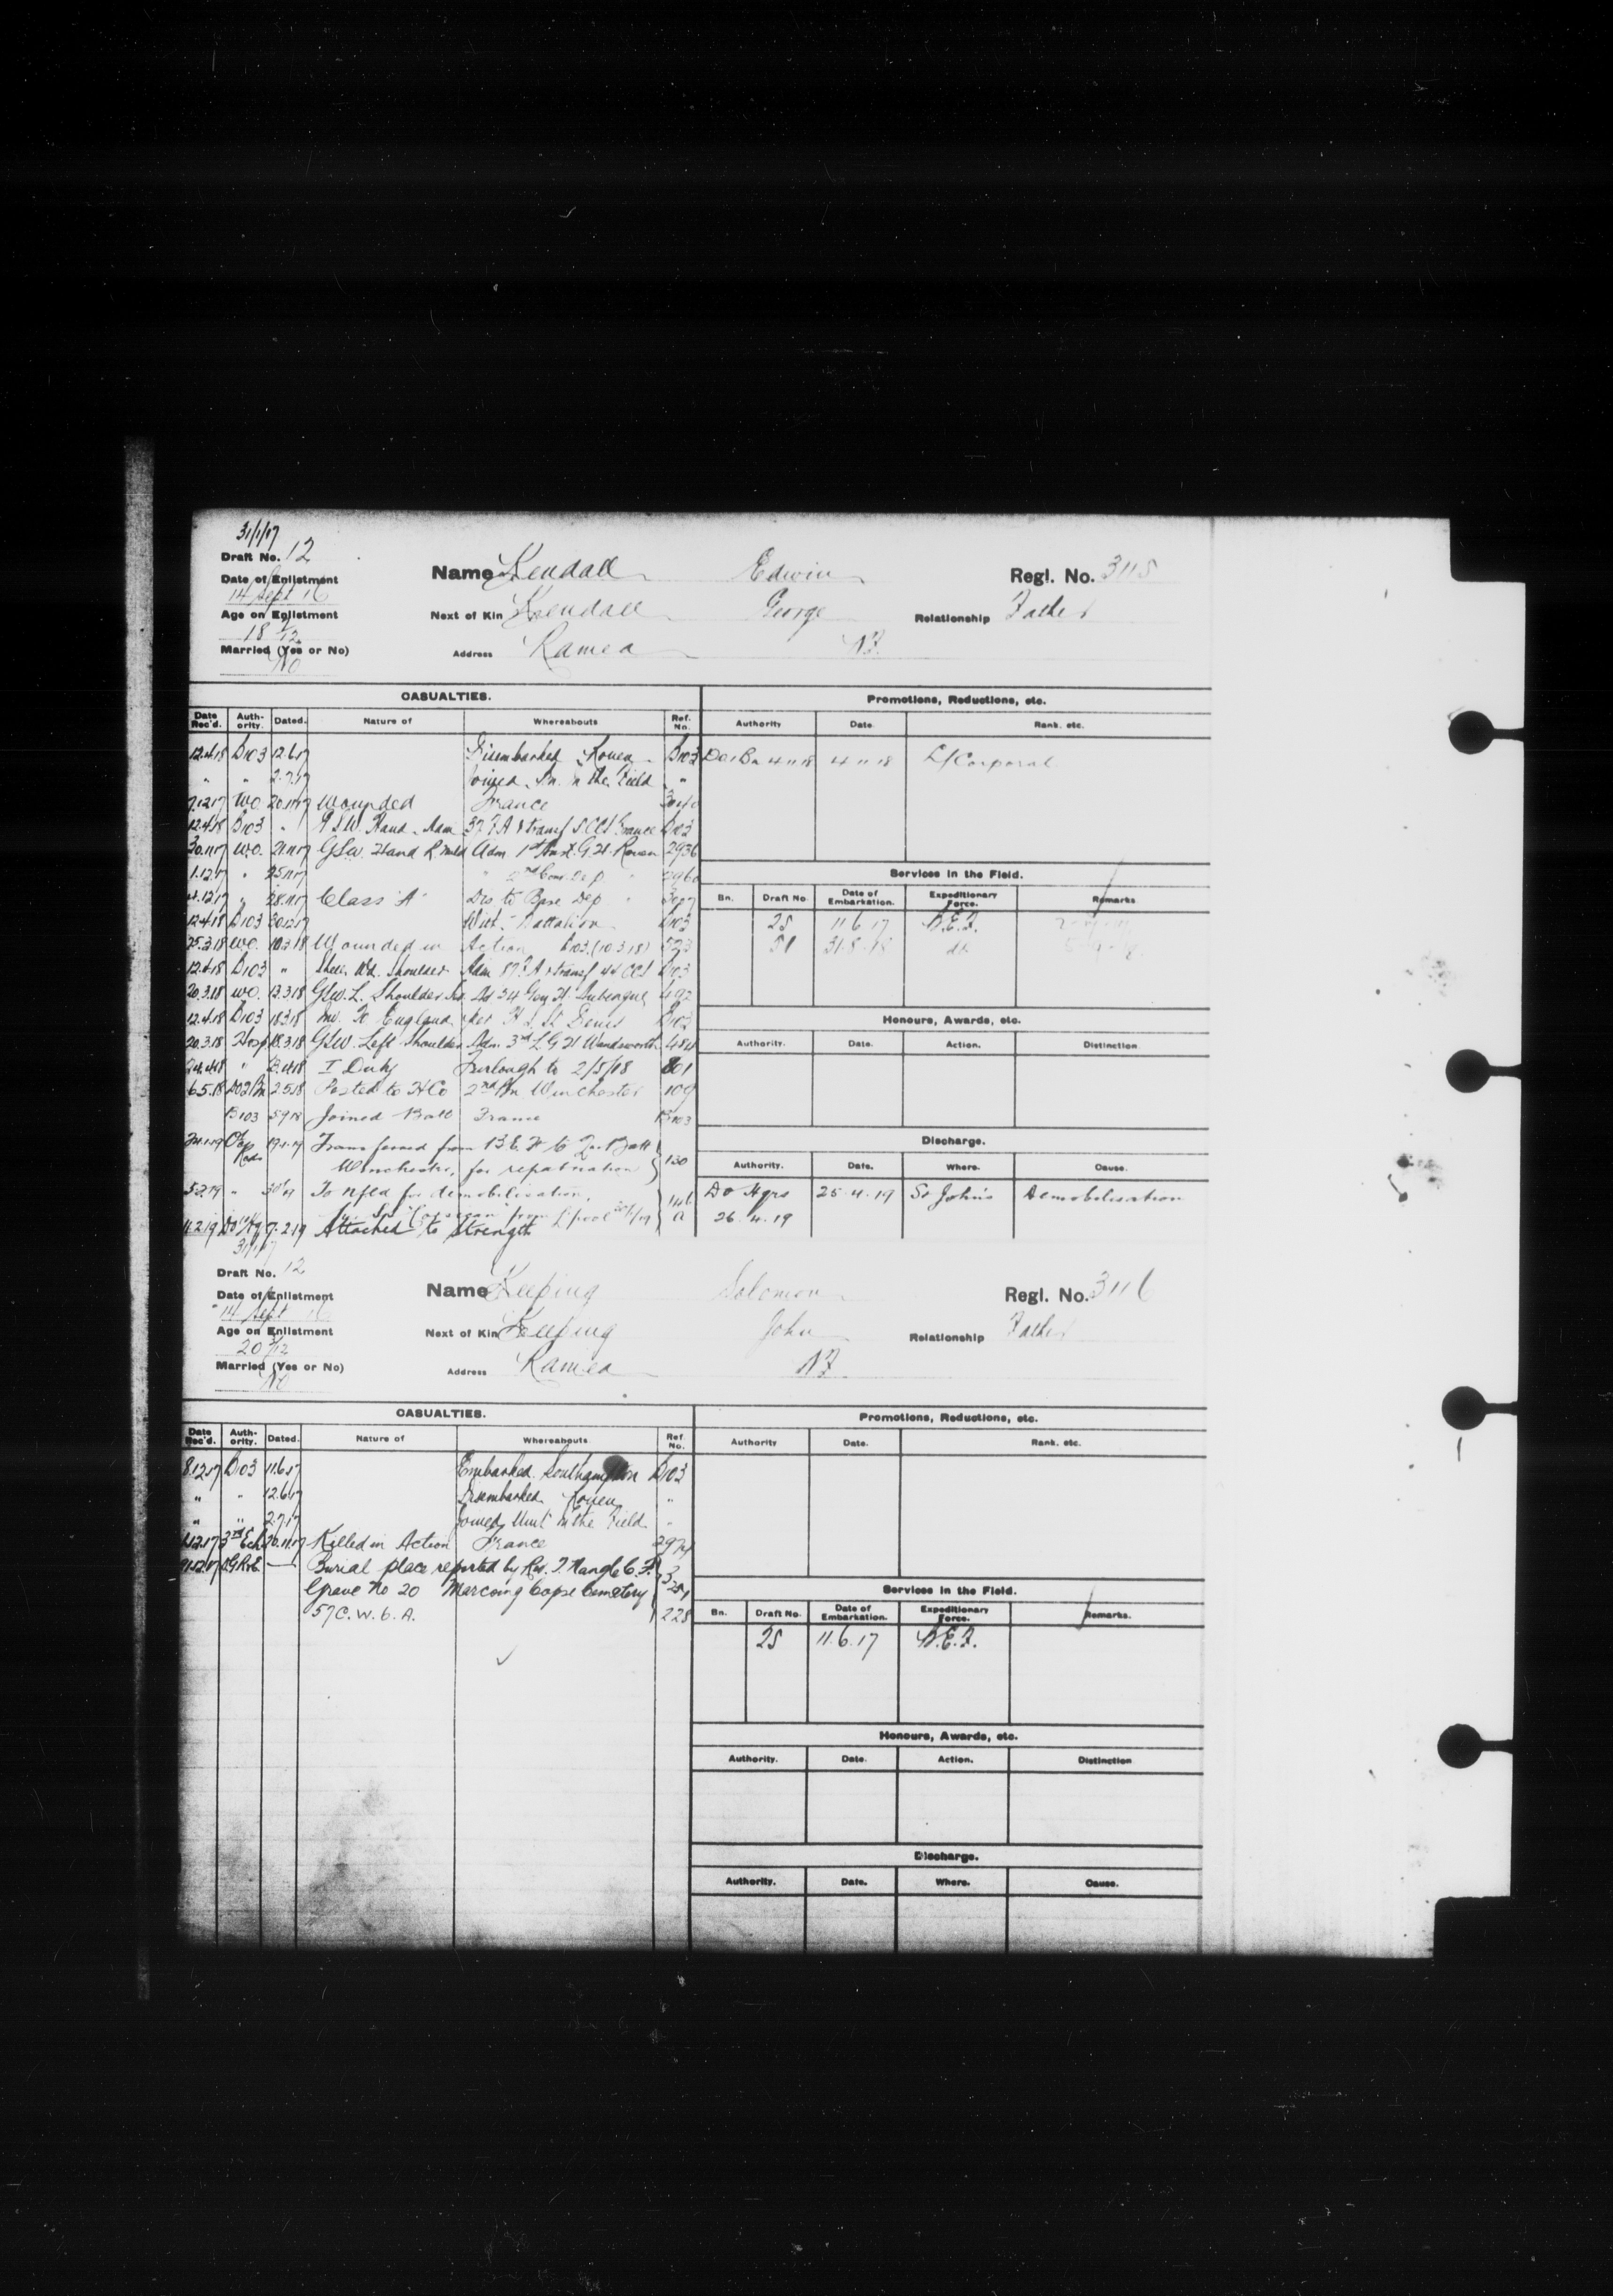 31/1/17
Draft No. 12
Name Kendall Edwin Regl. No. 3115
Date of Enlistment
14 Sept 16
Next of Kin Kendall George Relationship Father
Age on Enlistment
18
Address Ramea NF.
Married (Yes or No)
No
CASUALTIES. Promotions, Reductions, etc.
Date Rec'd. Auth-ority. Dated. Nature of Whereabouts Ref. No. Authority Date Rank. etc.
12.4.18 B103 12.6.17 Disembarked Rouen B103 4 11 18 L/Corporal
" " 2.7.17 Joined Bn. in the Field "
7.12.17 WO 20.11.17 Wounded France
12.4.18 B103 " GSW. Hand. Adm 37 FA & transf 5 CCS France B103
30.11.17 WO. 21.11.17 GSW Hand R. mild Adm 1st Aust. G.H. Rouen 2936
Services in the Field.
1.12.17 " 25.11.17 " 2nd Con. Dep. "
Bn. Draft No. Date of Embarkation. Expeditionary Force. Remarks.
4.12.17 " 28.11.17 Class "A" Dis to Base Dep "
12.4.18 B103 Battalion B103 25 11 6 17 B.E.F.
25.3.18 WO. 10.3.18 Wounded in Action B103 (10.3.18) 523 51 31.8.18 do
12.4.18 B103 " Shell Wd. Shoulder Adm 87 FA & transf 44 CCS B103
20.3.18 WO. 13.3.18 GSW. L. Shoulder Ad 54 Gen H. Aubengue 492
12.4.18 B103 18.3.18 Inv. to England per H S St Denis B103
Honours, Awards, etc.
20.3.18 Hosp 18.3.18 GSW. Left Shoulder Adm. 3rd L G H Wandsworth 484
Authority. Date. Action. Distinction
24.4.18 " I Duty Furlough to 2/5/18 801
6.5.18 2.5.18 Posted to H Co 2nd Bn Winchester 109
B103 5 9 18 Joined Batt France B103
Discharge.
19.1.19 Transferred from B.E.F to 2nd Batt Winchester, for repatriation 130
Authority. Date. Where. Cause.
5.2.19 " To Nfld for demobilisation, D O Hqrs 25.4.19 St John's Demobilisation
per SS "Corsican" from L'pool 26.4.19
7.2.19 Attached to Strength
31/1/17
Draft No. 12
Name Keeping Solomon Regl. No. 3116
Date of Enlistment
14 Sept 16
Next of Kin Keeping John Relationship Father
Age on Enlistment
20
Address Ramea NF.
Married (Yes or No)
No
CASUALTIES. Promotions, Reductions, etc.
Date Rec'd. Auth-ority. Dated. Nature of Whereabouts Ref. No. Authority Date. Rank. etc.
8.12.17 B103 11.6.17 Embarked Southampton B103
" " 12.6.17 Disembarked Rouen "
" " 2.7.17 Joined Unit in the Field "
3rd Ech 20.11.17 Killed in Action France 2974
Burial place reported by Rev. T. Nangle C.F.
Grave No 20 Marcoing Copse Cemetery
Services in the Field.
57 C.W.G.A. 228
Bn. Draft No. Date of Embarkation. Expeditionary Force. Remarks.
25 11.6.17 B.E.F.
Honours, Awards, etc.
Authority. Date. Action. Distinction
Discharge.
Authority. Date. Where. Cause.